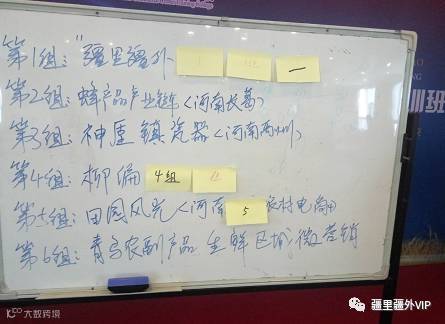 第1组："疆里疆外 一
第2组：蜂产品产业链（河南长葛）
第3组：神垕镇瓷器（河南禹州）
第4组：柳编 4组
第5组：田园风光（河南 5 农村电商
第6组：青乌农副产品 生鲜区域微营销
训班
大数跨境
疆里疆外VIP